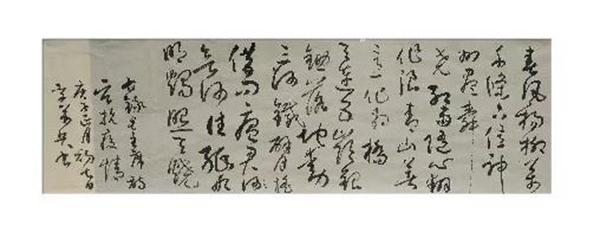 春風楊柳萬
千條六億神
州盡舜
堯紅雨隨心翻
作浪青山着
意化為橋
天連五嶺銀
鋤落地動
三河鐵臂搖
借問瘟君欲
何往紙船
明燭照天燒
錄毛主席詩
抗疫情
庚子正月初七日
書